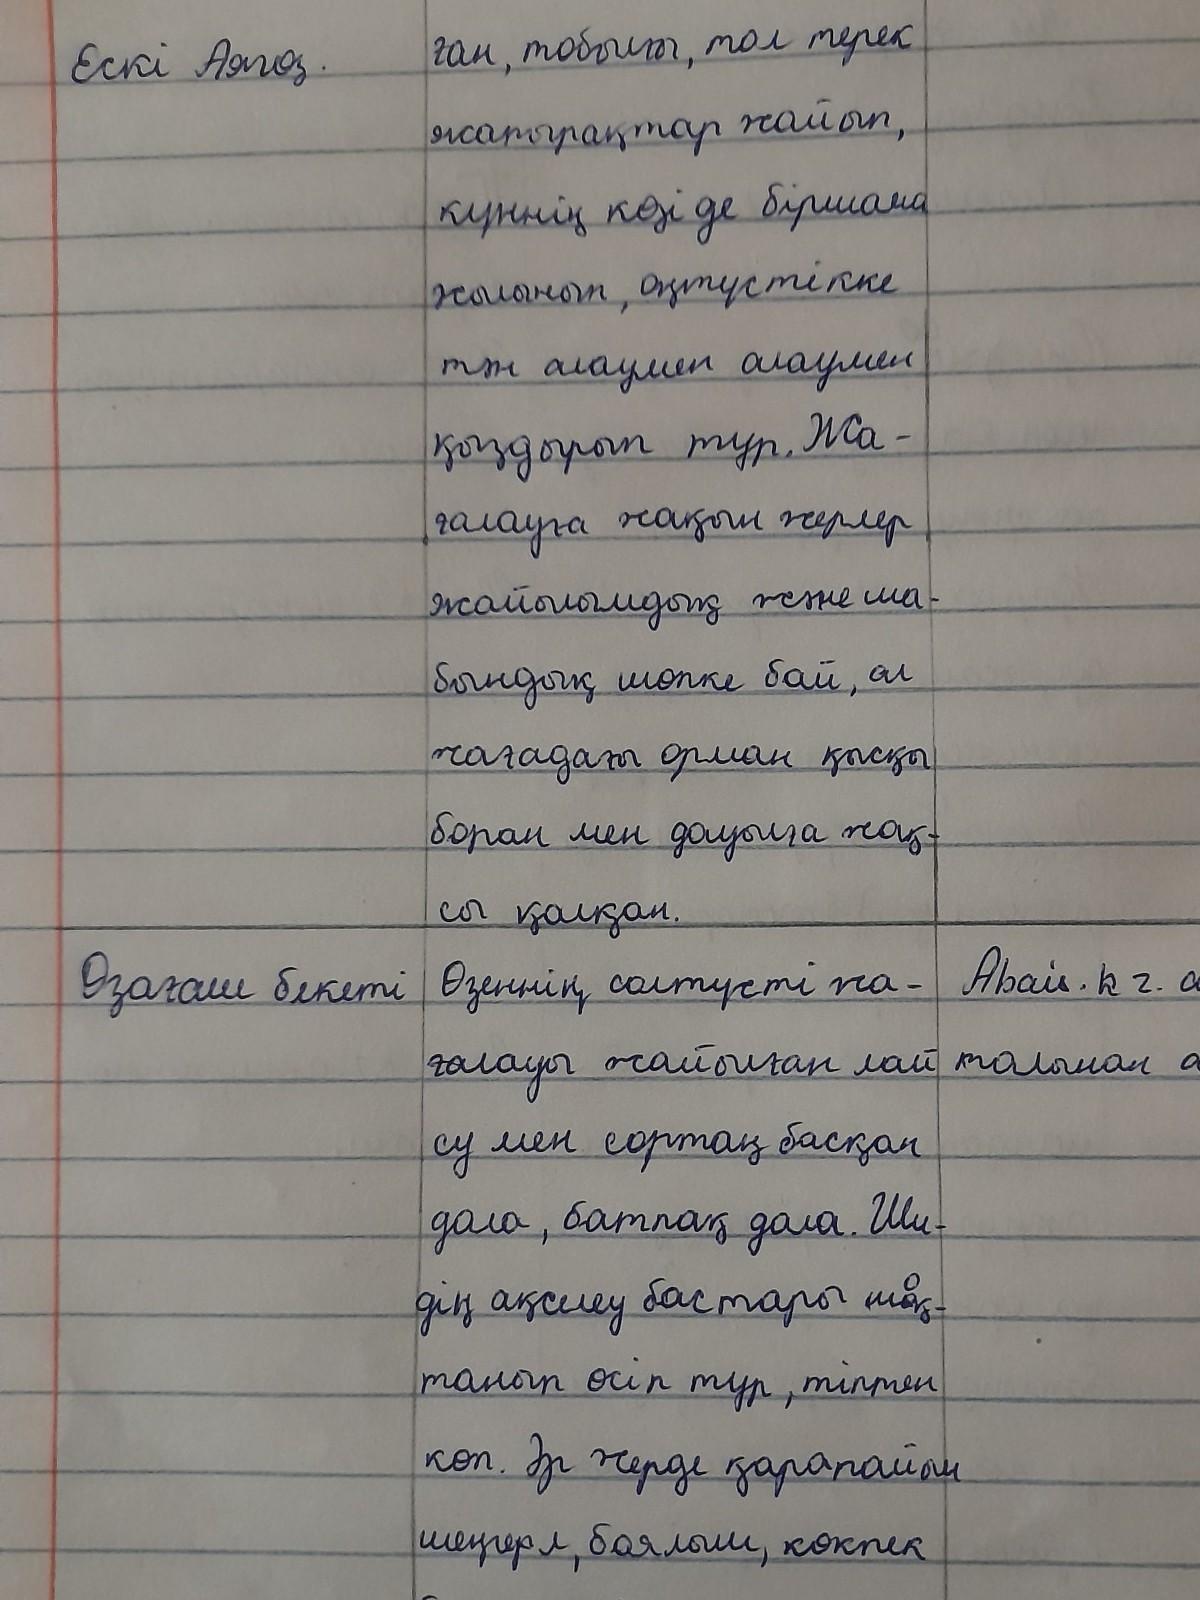 Ескі Аягөз.
ған, тобылғы, тол терек
жапырақтар жайып,
күннің көзі де біршама
жылынып, оңтүстікке
тік алаумен алаумен
қыздырып тұр. Жа-
ғалауға жақын жерлер
жайылымдық және ша-
бындық шөпке бай, ал
жағадағы орман қысқы
боран мен дауылға жақ-
сы қалқан.
Өзағаш бекеті
Өзеннің солтүсті жа-
ғалауы жайылған лай
су мен сортаң басқан
дала, батпақ дала. Ши-
дің ақселеу бастары шоқ-
танып өсіп тұр, тіптен
көп. Әр жерде қарапайым
шеңгел, баялыш, көкпек
Абай. к г. а
талынан а